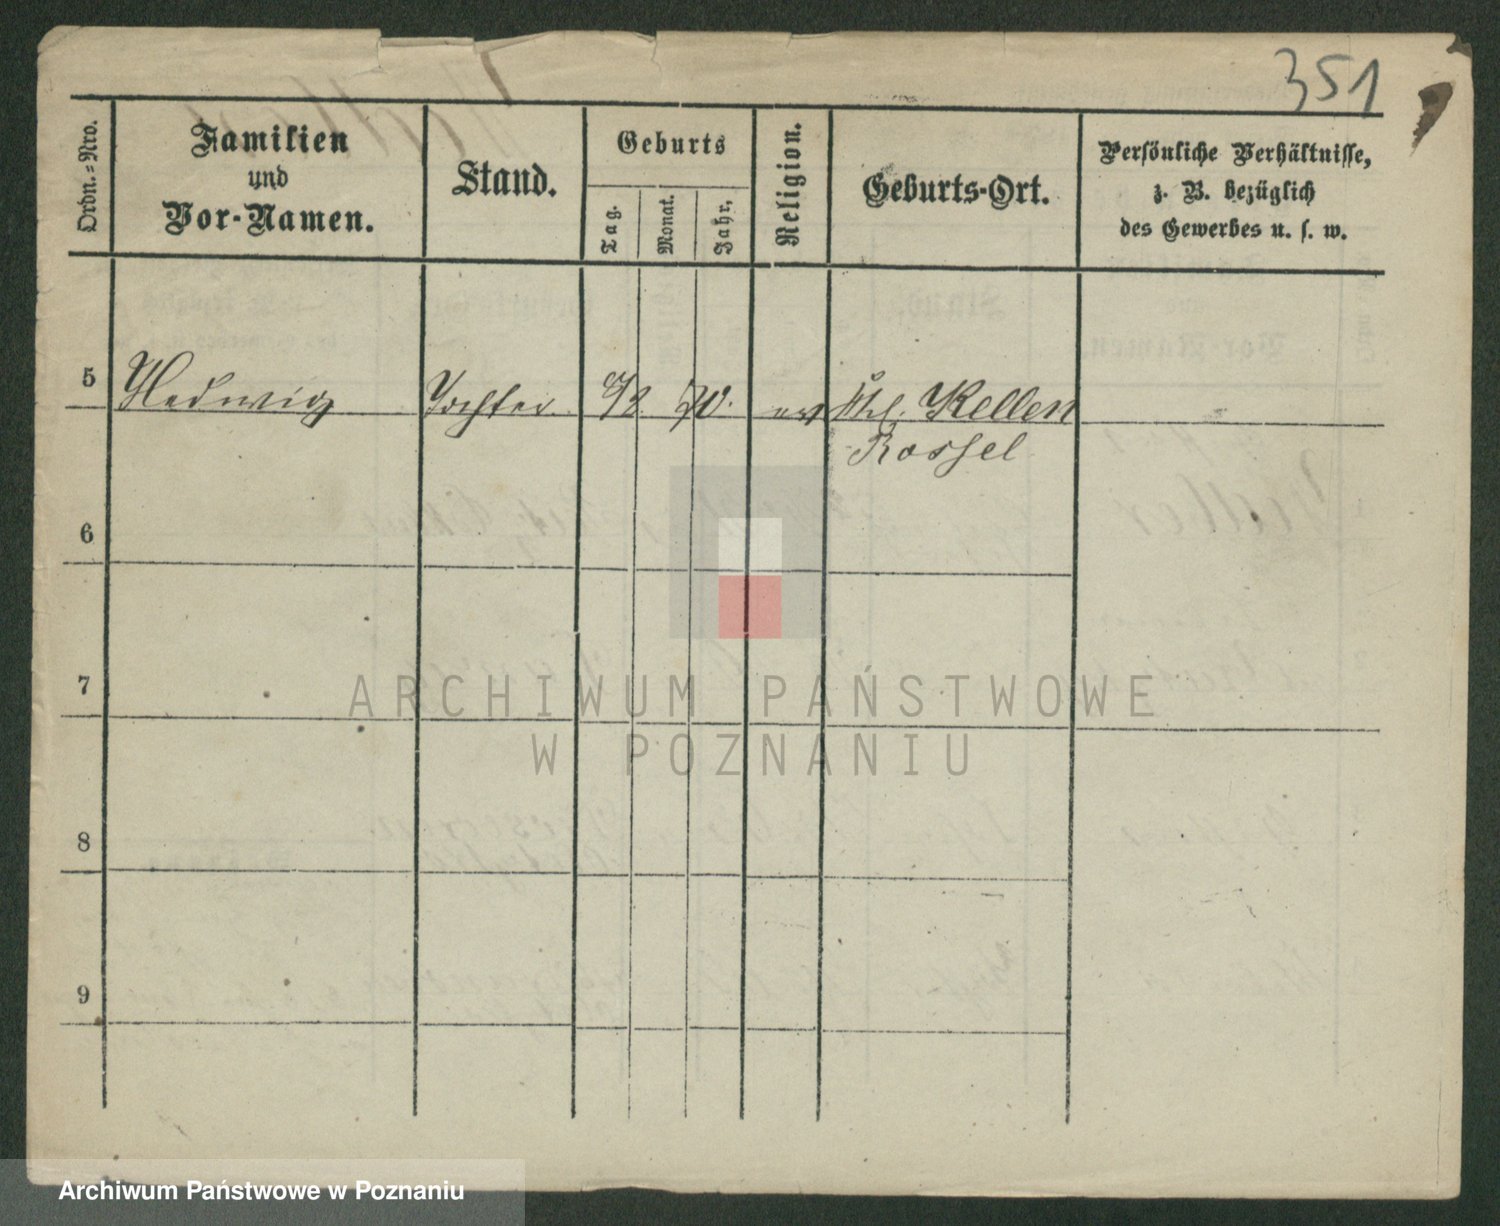 351
Ordn.-Nro.
Familien
und
Vor-Namen.
Stand.
Geburts
Tag.
Monat.
Jahr,
Religion.
Geburts-Ort.
Persönliche Verhältnisse,
z. B. bezüglich
des Gewerbes u. s. w.
5 Hedwig Tochter 9/2 70. ev Kellen
Rossel
6
7
ARCHIWUM PAŃSTWOWE
W POZNANIU
8
9
Archiwum Państwowe w Poznaniu